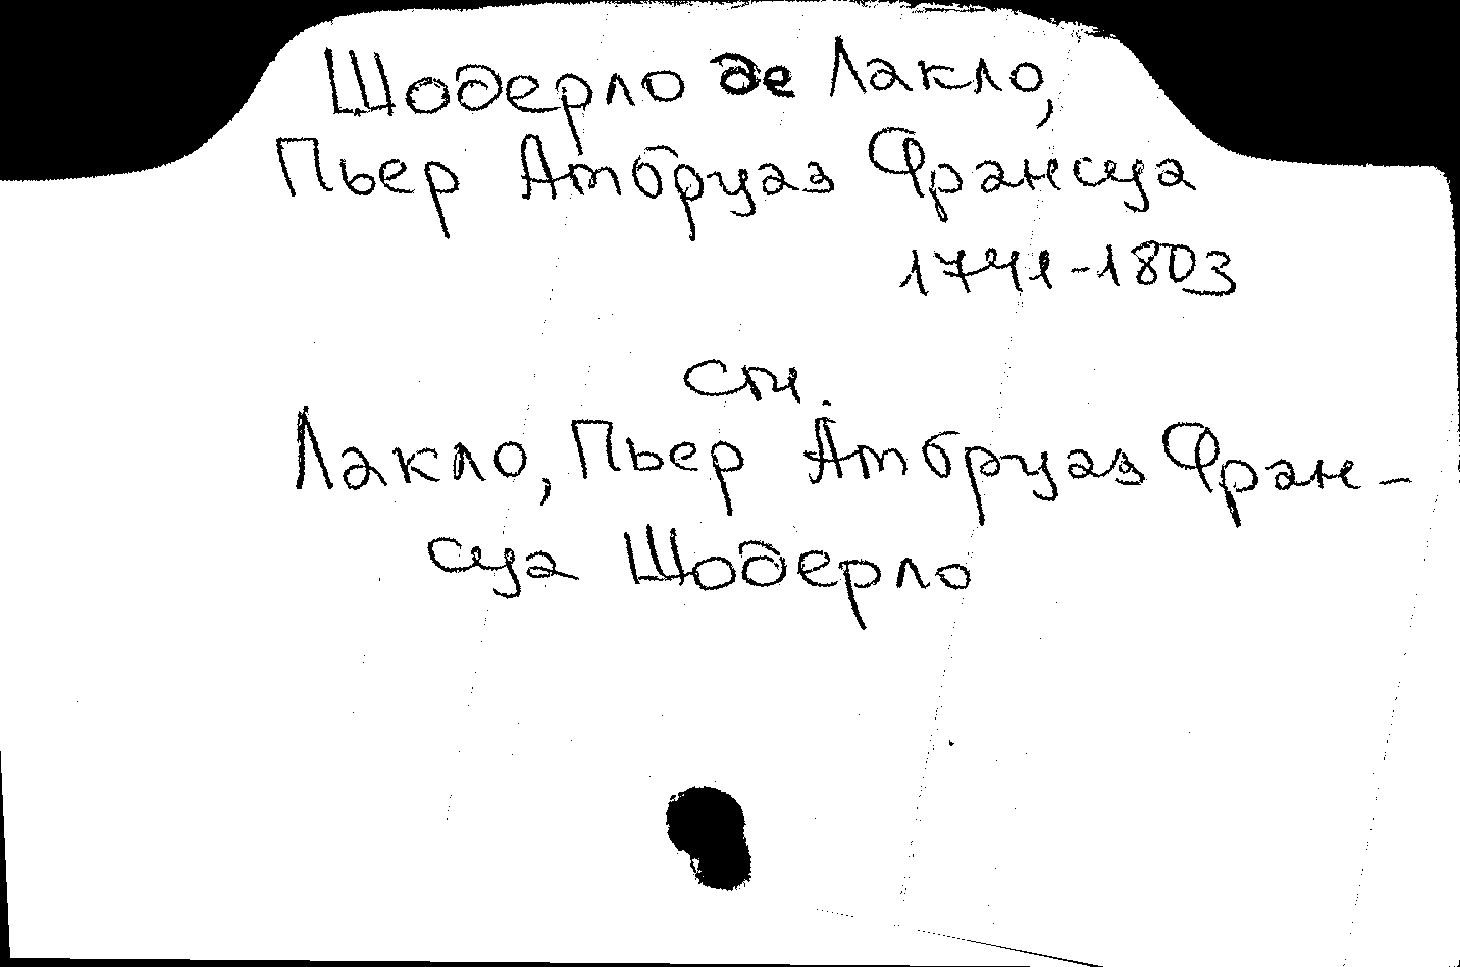 Шодерло де Лакло,
Пьер Амбруаз Франсуа
1741-1803
см.
Лакло, Пьер Амбруаз Фран-
суа Шодерло